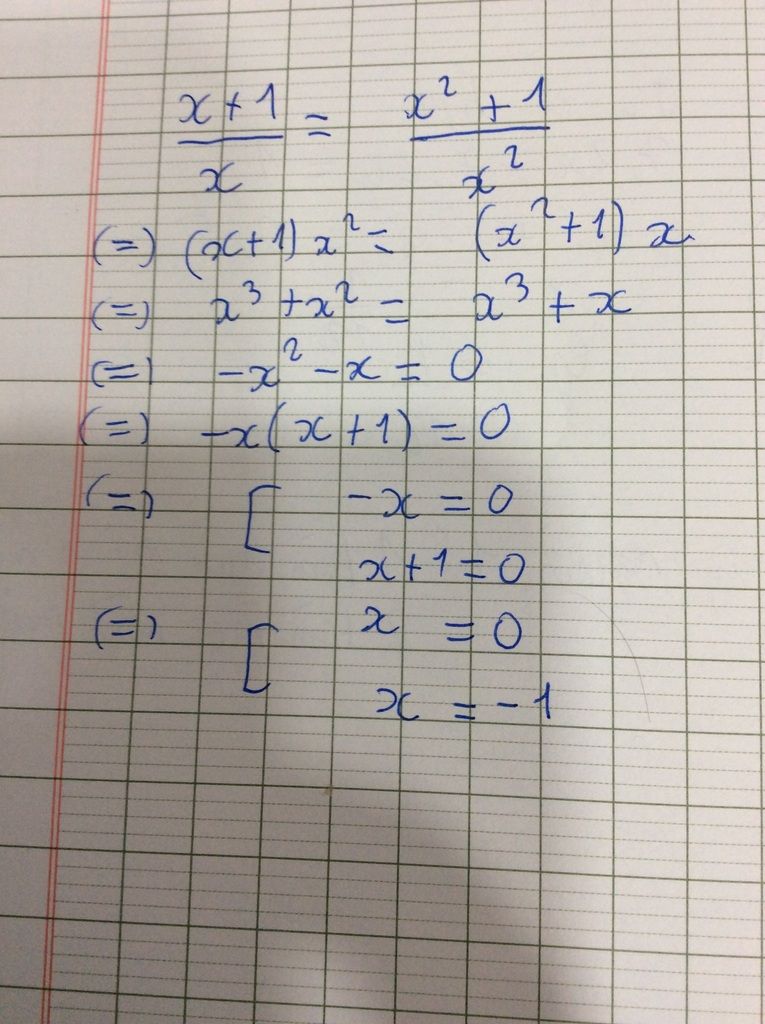 x + 1 / x = x² + 1 / x²
(=) (x+1) x² = (x²+1) x
(=) x³ + x² = x³ + x
(=) -x² - x = 0
(=) -x(x+1) = 0
(=) [ -x = 0
x+1 = 0
(=) [ x = 0
x = -1